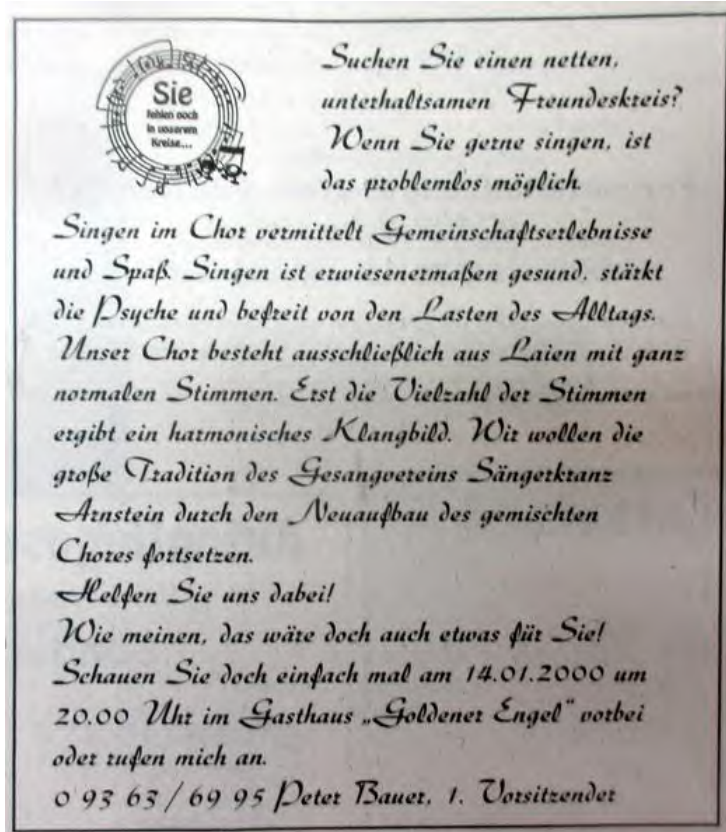 Sie
fehlen noch
in unserem
Kreise...
Suchen Sie einen netten,
unterhaltsamen Freundeskreis?
Wenn Sie gerne singen, ist
das problemlos möglich.
Singen im Chor vermittelt Gemeinschaftserlebnisse
und Spaß. Singen ist erwiesenermaßen gesund, stärkt
die Psyche und befreit von den Lasten des Alltags.
Unser Chor besteht ausschließlich aus Laien mit ganz
normalen Stimmen. Erst die Vielzahl der Stimmen
ergibt ein harmonisches Klangbild. Wir wollen die
große Tradition des Gesangvereins Sängerkranz
Arnstein durch den Neuaufbau des gemischten
Chores fortsetzen.
Helfen Sie uns dabei!
Wie meinen, das wäre doch auch etwas für Sie!
Schauen Sie doch einfach mal am 14.01.2000 um
20.00 Uhr im Gasthaus „Goldener Engel" vorbei
oder rufen mich an.
0 93 63 / 69 95 Peter Bauer, 1. Vorsitzender